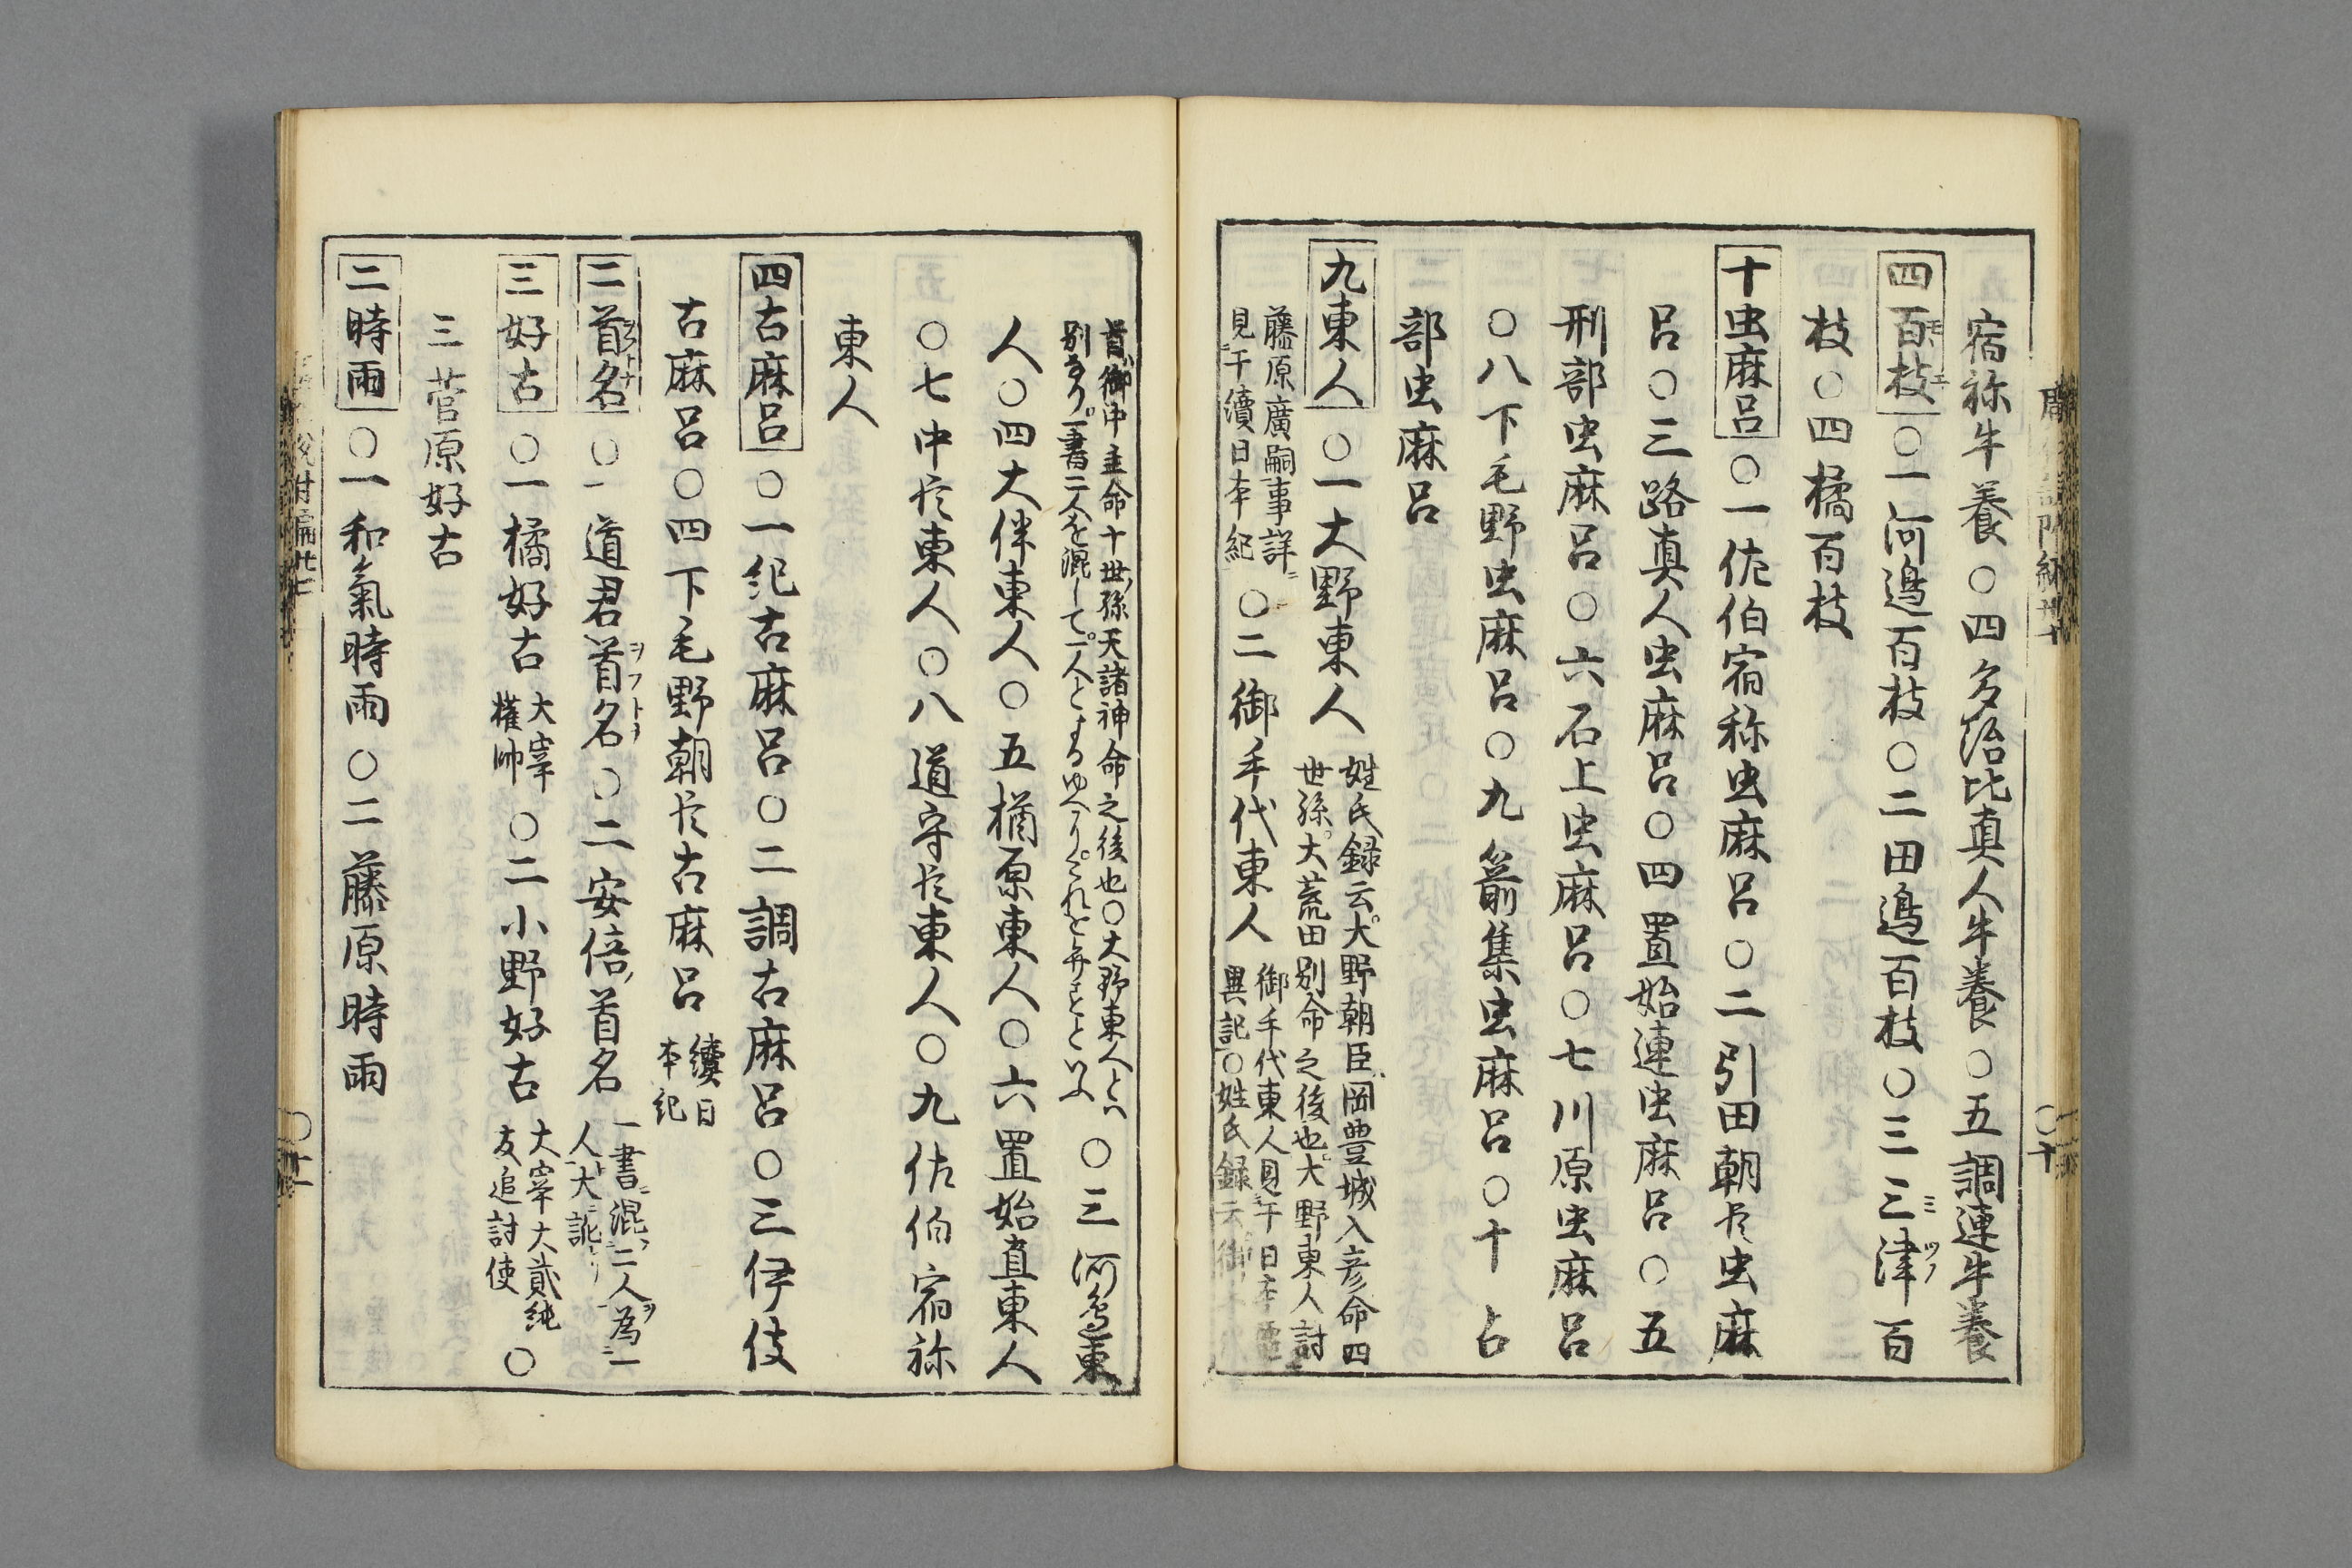 宿祢牛養〇四多治比真人牛養〇五調連牛養
四百枝〇一河邉百枝〇二田邉百枝〇三三津百
枝〇四橘百枝
十虫麻呂〇一佐伯宿祢虫麻呂〇二引田朝臣虫麻
呂〇三路真人虫麻呂〇四置始連虫麻呂〇五
刑部虫麻呂〇六石上虫麻呂〇七川原虫麻呂
〇八下毛野虫麻呂〇九箭集虫麻呂〇十占
部虫麻呂
九東人〇一大野東人
姓氏録云大野朝臣岡豊城入彦命四
世孫大荒田別命之後也大野東人討
藤原廣嗣事詳
見于續日本紀
〇二御手代東人
御手代東人見于日本霊
異記〇姓氏録云御
首御中主命十世孫天諸神命之後也〇大野東人とハ
別なり一書二人を混して一人と
〇三河邉東
人〇四大伴東人〇五楢原東人〇六置始直東人
〇七中臣東人〇八道守臣東人〇九佐伯宿祢
東人
四古麻呂〇一紀古麻呂〇二調古麻呂〇三伊伎
古麻呂〇四下毛野朝臣古麻呂
續日
本紀
二首名〇一道君首名〇二安倍首名
一書混二人為一
人大訛
三好古〇一橘好古
大宰
権帥
〇二小野好古
大宰大貳純
友追討使
〇
三菅原好古
二時雨〇一和氣時雨〇二藤原時雨